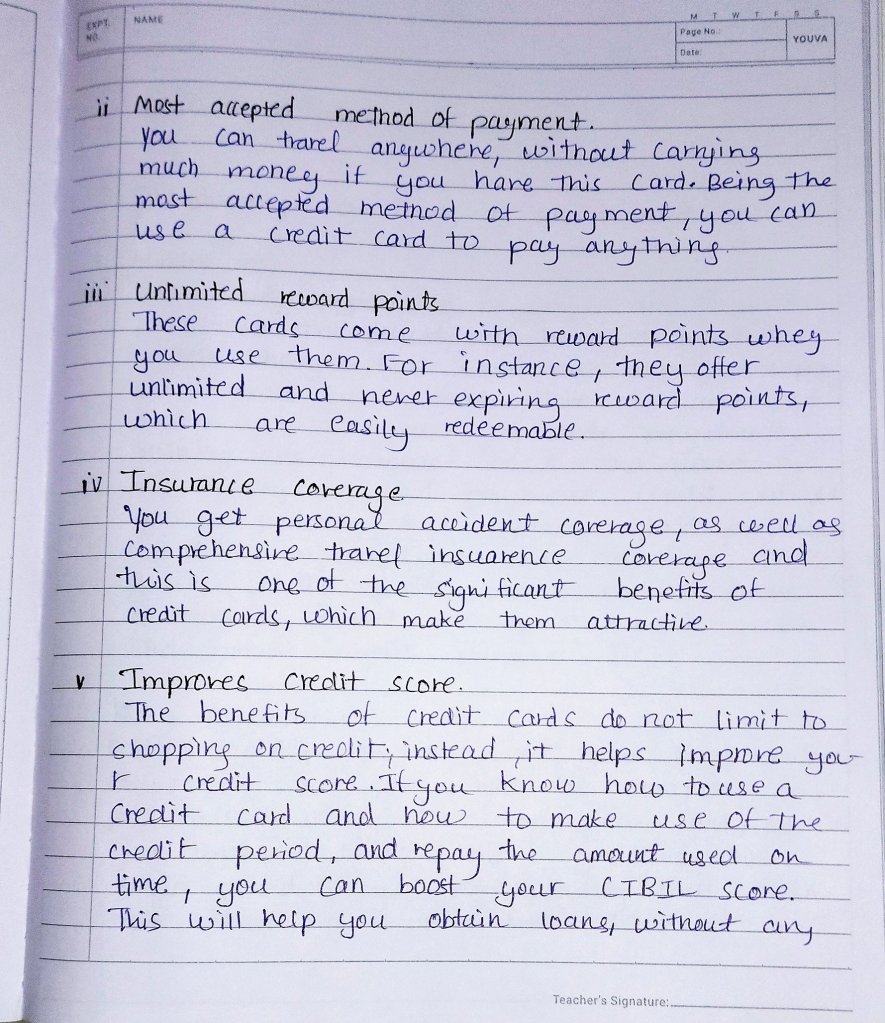 EXPT. NO.
NAME
M T W T F S S
Page No.:
Date:
YOUVA
ii Most accepted method of payment.
You can travel anywhere, without carrying
much money if you have this card. Being the
most accepted method of payment, you can
use a credit card to pay anything.
iii Unlimited reward points
These cards come with reward points whey
you use them. For instance, they offer
unlimited and never expiring reward points,
which are easily redeemable.
iv Insurance coverage
You get personal accident coverage, as well as
comprehensive travel insuarence coverage and
this is one of the significant benefits of
credit cards, which make them attractive.
v Improves credit score.
The benefits of credit cards do not limit to
shopping on credit; instead, it helps improve you-
r credit score. If you know how to use a
credit card and how to make use of the
credit period, and repay the amount used on
time, you can boost your CIBIL score.
This will help you obtain loans, without any
Teacher's Signature: